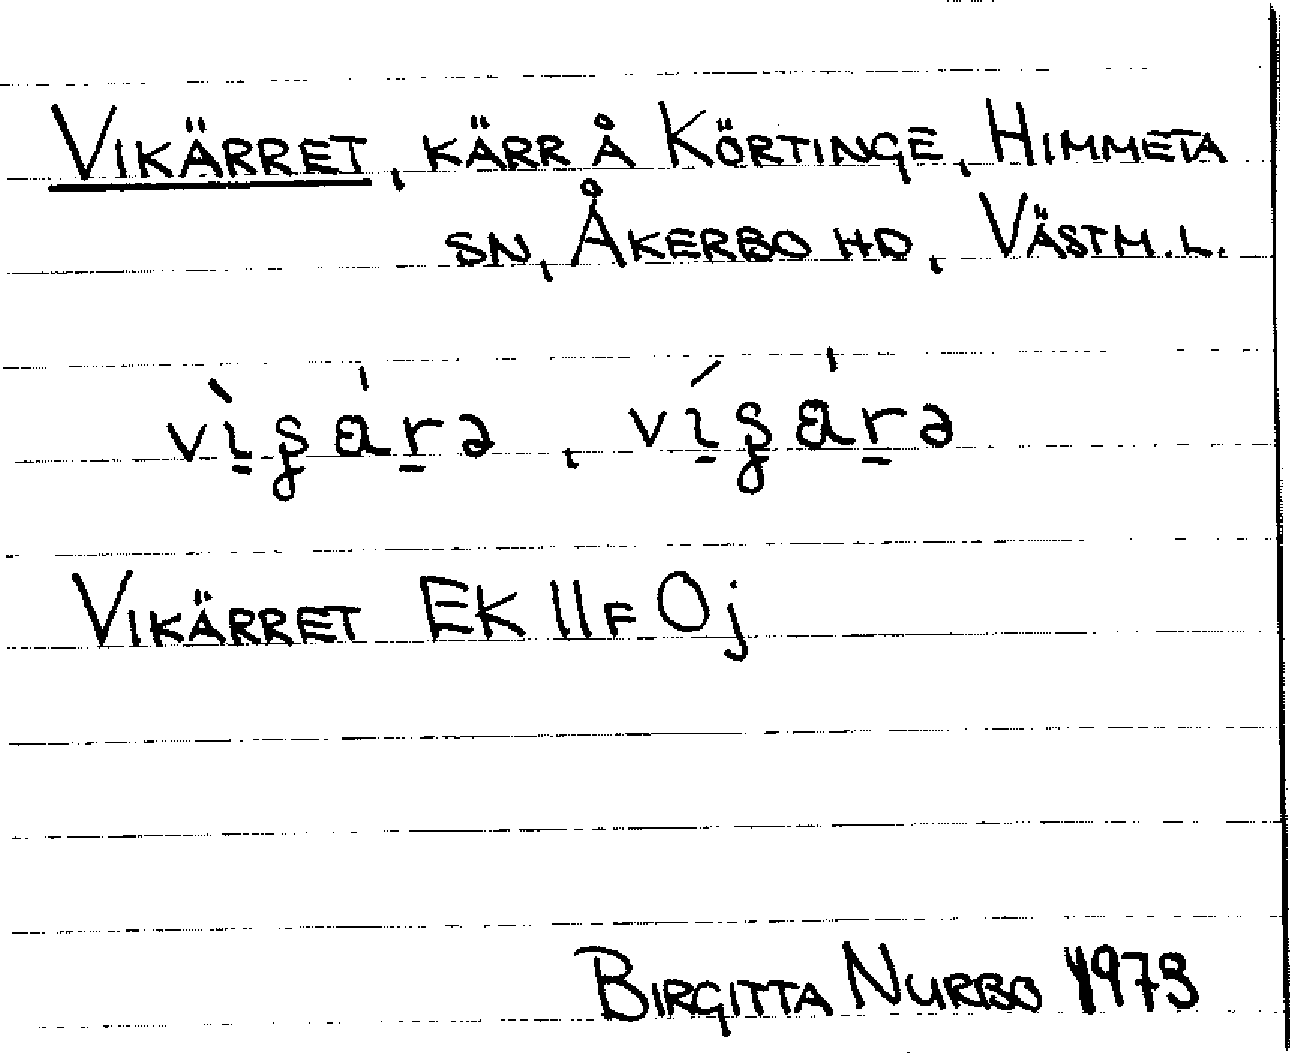 VIKÄRRET, KÄRR Å KÖRTINGE, HIMMETA
SN, ÅKERBO HD, VÄSTM. L.
VIKÄRRET EK 11F 0j
BIRGITTA NURBO 1973